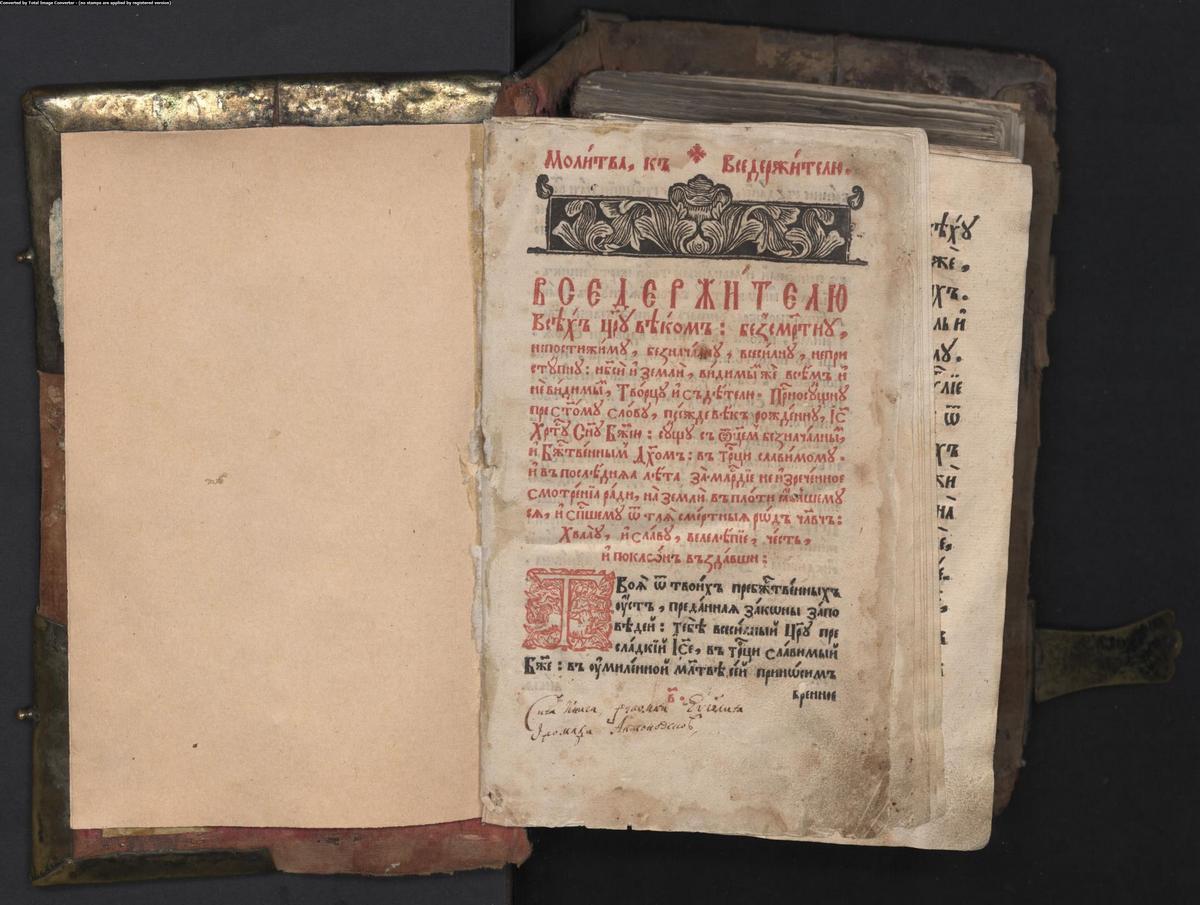 Converted by Total Image Converter - (no stamps are applied by registered version)
Моли́тва, къ Вседержи́телю.
ВСЕДЕРЖИ́ТЕЛЮ
Всѣ́хъ цр҃ю вѣко́мъ : безсме́ртну,
непостижи́му, безнача́лну, всеси́лну, непри
ступну : нб҃си и҆ земли, ви́димым же всѣ́мъ и҆
неви́димым, Творцу и҆ съдѣ́телю. Присносу́щну
прест҃о́му сло́ву, пре́жде вѣ́къ рожде́нну, І҆с҃
Хрⷭ҇ту Сн҃у Бж҃ию : су́щу съ ѿц҃е́мъ безнача́лным,
и҆ Бжⷭ҇твенным Дх҃омъ : въ трⷪ҇ци славимому.
и҆ въ послѣ́дняя лѣ́та за млⷭ҇рдїе неизрече́нное
смотре́нїя ра́ди, на́ земли въ пло́ти
ея, и҆ сп҃шему ѿ тля̀ сме́ртныя ро́дъ чл҃вчь :
Хвалу̀, и҆ сла́ву, велелѣ́пїе, че́сть,
и҆ покло́нъ възда́вши :
ТВоя̀ ѿ твои́хъ пребжⷭ҇тве́нныхъ
оу҆́стъ, преда́нная зако́ны запо
вѣдей : тебѣ̀ всеси́лный Цр҃ю пре
сла́дкїй І҆с҃е, въ трⷪ҇ци сла́вимый
Бж҃е : въ оу҆миле́нной мл҃твѣ се́й прино́симъ
бренное
в҃.
Сия книга
ѣху
жѐ,
хъ.
ль и҆
му.
ѿ
хъ
жи
на̀